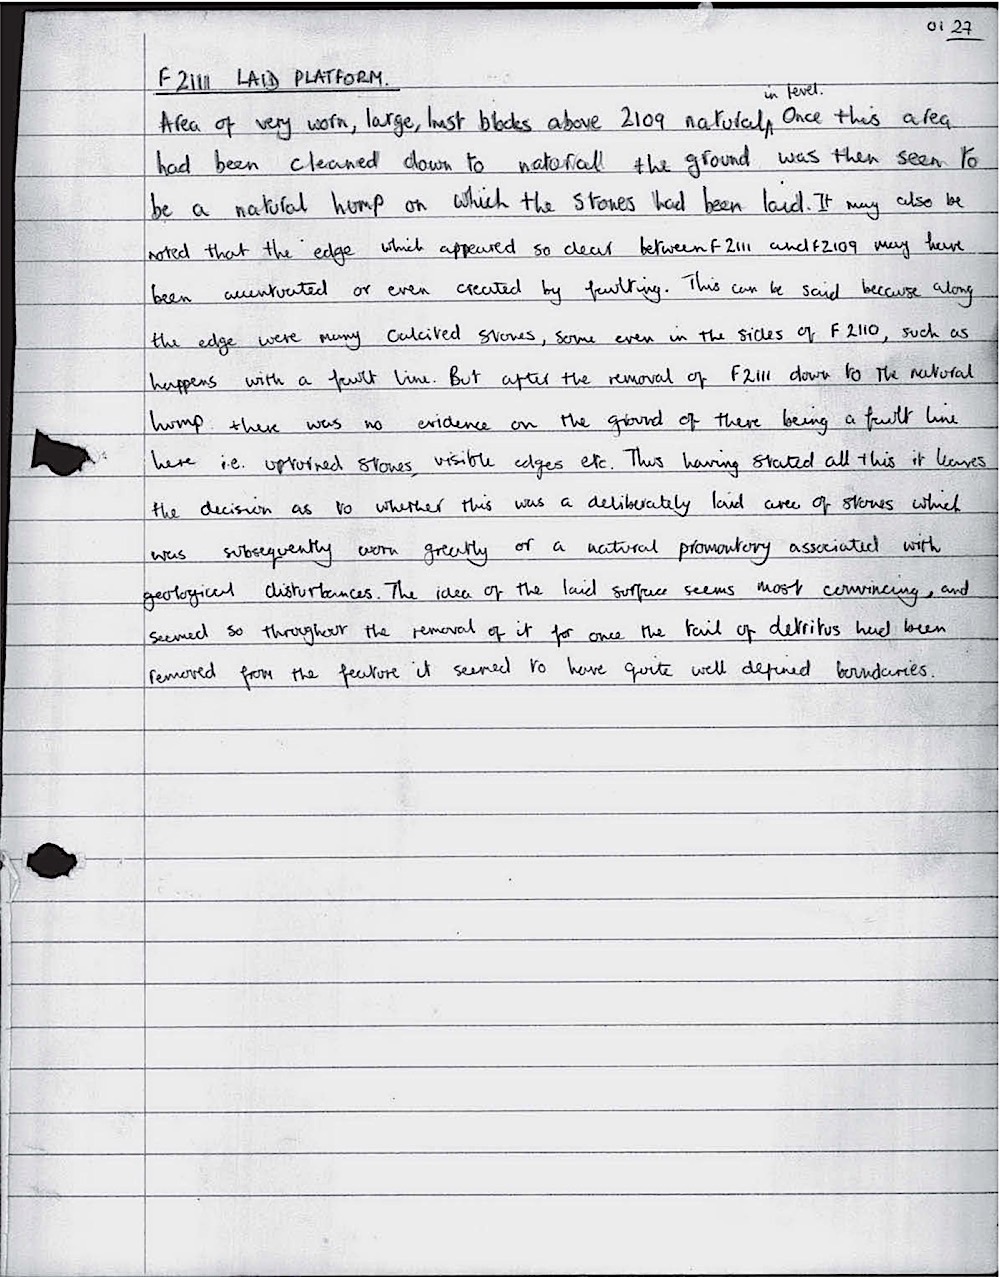 01 27
F 2111 LAID PLATFORM.
in level.
Area of very worn, large, hmst blocks above 2109 natural, Once this area
had been cleaned down to naterall the ground was then seen to
be a natural hump on which the stones had been laid. It may also be
noted that the edge which appeared so clear between F 2111 and F2109 may have
been accentuated or even created by faulting. This can be said because along
the edge were many Calcited stones, some even in the sides of F 2110, such as
happens with a fault line. But after the removal of F2111 down to the natural
hump there was no evidence on the ground of there being a fault line
here i.e. upturned stones, visible edges etc. Thus having stated all this it leaves
the decision as to whether this was a deliberately laid area of stones which
was subsequently worn greatly or a natural promontory associated with
geological disturbances. The idea of the laid surface seems most convincing, and
seemed so throughout the removal of it for once the tail of detritus had been
removed from the feature it seemed to have quite well defined boundaries.